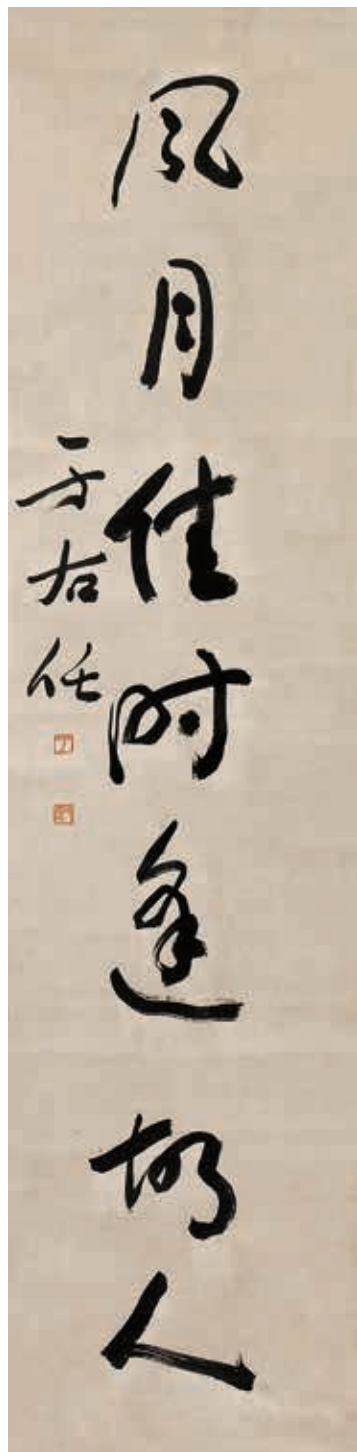 风月佳时逢故人
于右任